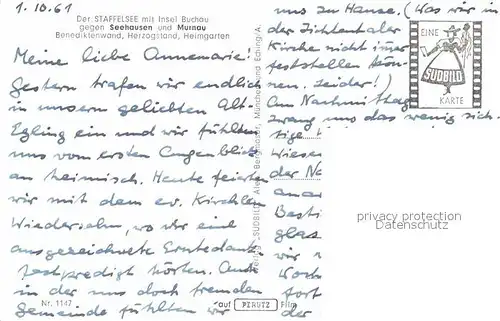 1.10.61
Der STAFFELSEE mit Insel Buchau
gegen Seehausen und Murnau
Benediktenwand, Herzogstand, Heimgarten
Meine liebe Annemarie!
Gestern trafen wir endlich
in unsern geliebten Alt-
Egling ein und wir fühlten
uns vom ersten Augenblick
an heimisch. Heute feierten
wir mit dem ev. Kirchlein
Wiedersehn, wo wir eine
ausgezeichnete Erntedank
festpredigt hörten. Auch
in der uns doch fremden
Gemeinde fühlten wir
Nr. 1147
Verlag „SÜDBILD" Alex Berghausen, München und Eching/A.
auf PERUTZ Film
uns zu Hause. (Was wir in
der Lichtentaler
Kirche nicht immer
feststellen kön-
nen. Leider!)
Am Nachmittag
zwang uns das wenig sich-
tige
Wiesen
der Na
Besti
glas
wir
fort
der
EINE
SÜDBILD
KARTE
privacy protection
Datenschutz